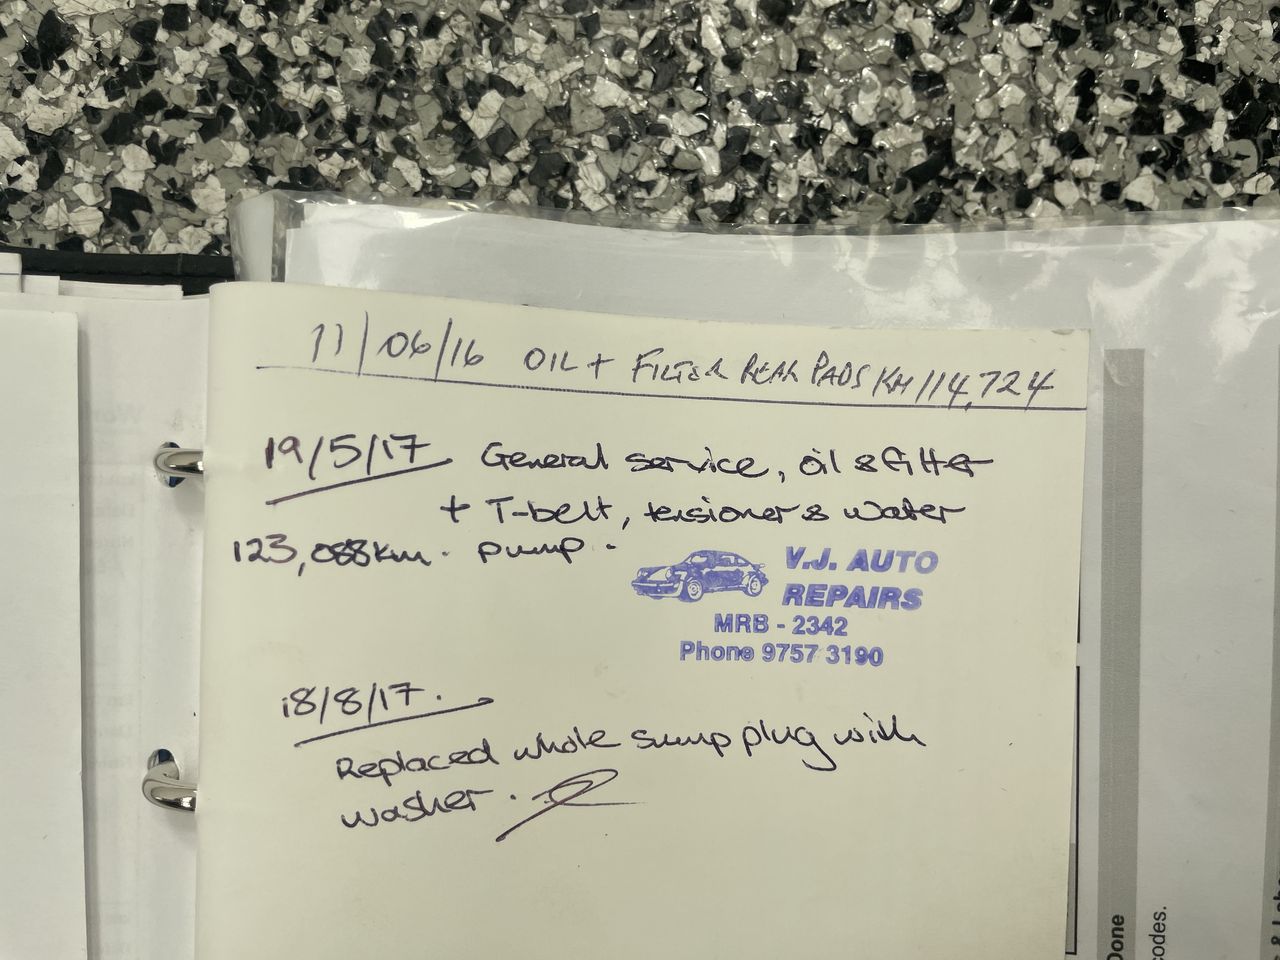 11/06/16 OIL + FILTER REAR PADS KM 114,724
19/5/17 General service, oil & filter
+ T-belt, tensioner & water
123,088km. pump.
V.J. AUTO
REPAIRS
MRB - 2342
Phone 9757 3190
18/8/17.
Replaced whole sump plug with
washer.
Done
codes.